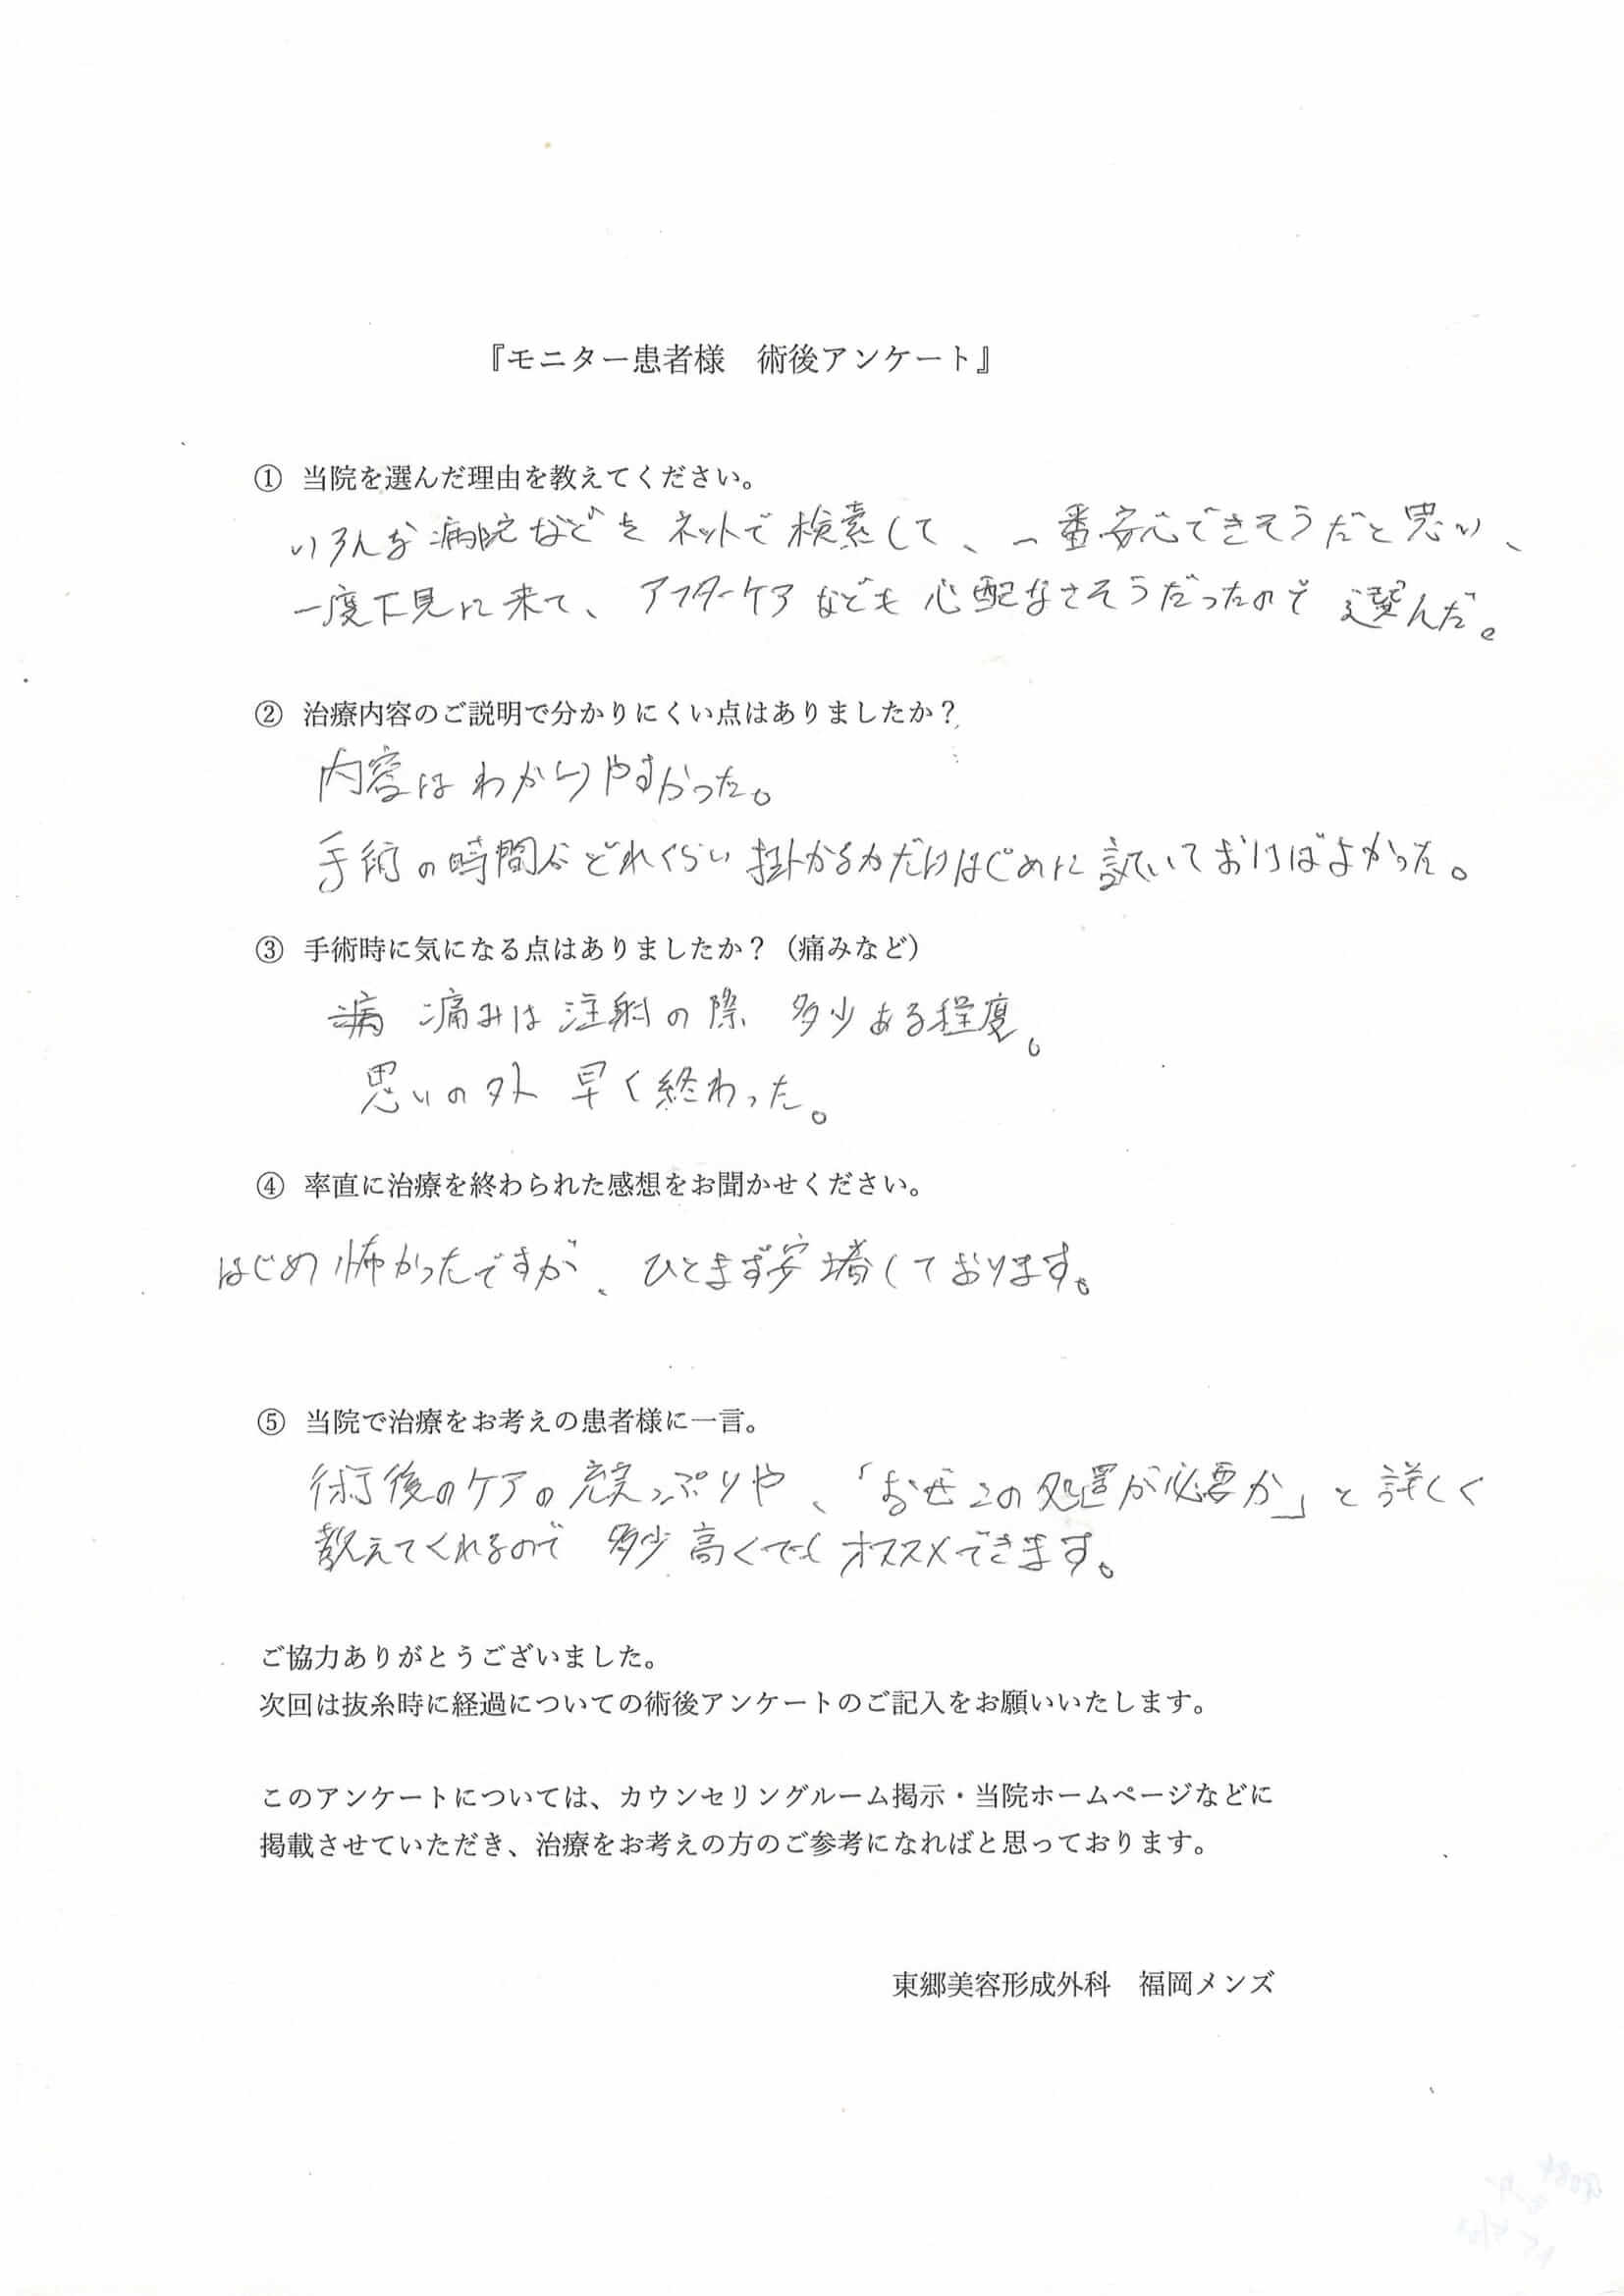 『モニター患者様　術後アンケート』
① 当院を選んだ理由を教えてください。
いろんな病院などをネットで検索して、一番安心できそうだと思い、
一度下見に来て、アフターケアなども心配なさそうだったので選んだ。
② 治療内容のご説明で分かりにくい点はありましたか？
内容はわかりやすかった。
手術の時間がどれくらい掛かるかだけはじめに訊いておけばよかった。
③ 手術時に気になる点はありましたか？（痛みなど）
痛みは注射の際 多少ある程度。
思いの外 早く終わった。
④ 率直に治療を終わられた感想をお聞かせください。
はじめ怖かったですが、ひとまず安堵しております。
⑤ 当院で治療をお考えの患者様に一言。
術後のケアの充実っぷりや、「なぜこの処置が必要か」と詳しく
教えてくれるので 多少高くてもオススメできます。
ご協力ありがとうございました。
次回は抜糸時に経過についての術後アンケートのご記入をお願いいたします。
このアンケートについては、カウンセリングルーム掲示・当院ホームページなどに
掲載させていただき、治療をお考えの方のご参考になればと思っております。
東郷美容形成外科　福岡メンズ